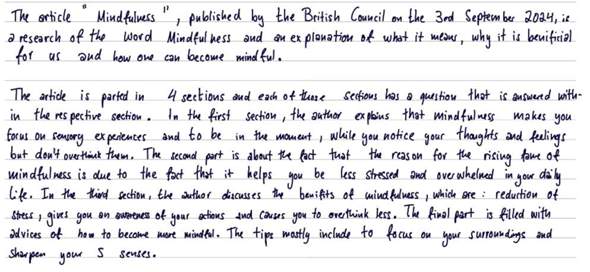 The article " Mindfulness ", published by the British Council on the 3rd September 2024, is
a research of the word Mindfulness and an explanation of what it means, why it is benificial
for us and how one can become mindful.
The article is parted in 4 sections and each of those sections has a question that is answered with-
in the respective section. In the first section, the author explains that mindfulness makes you
focus on sensory experiences and to be in the moment, while you notice your thoughts and feelings
but don't overthink them. The second part is about the fact that the reason for the rising fame of
mindfulness is due to the fact that it helps you be less stressed and overwhelmed in your daily
life. In the third section, the author discusses the benifits of mindfulness, which are : reduction of
stress, gives you an awareness of your actions and causes you to overthink less. The final part is filled with
advices of how to become more mindful. The tips mostly include to focus on your surroundings and
sharpen your 5 senses.